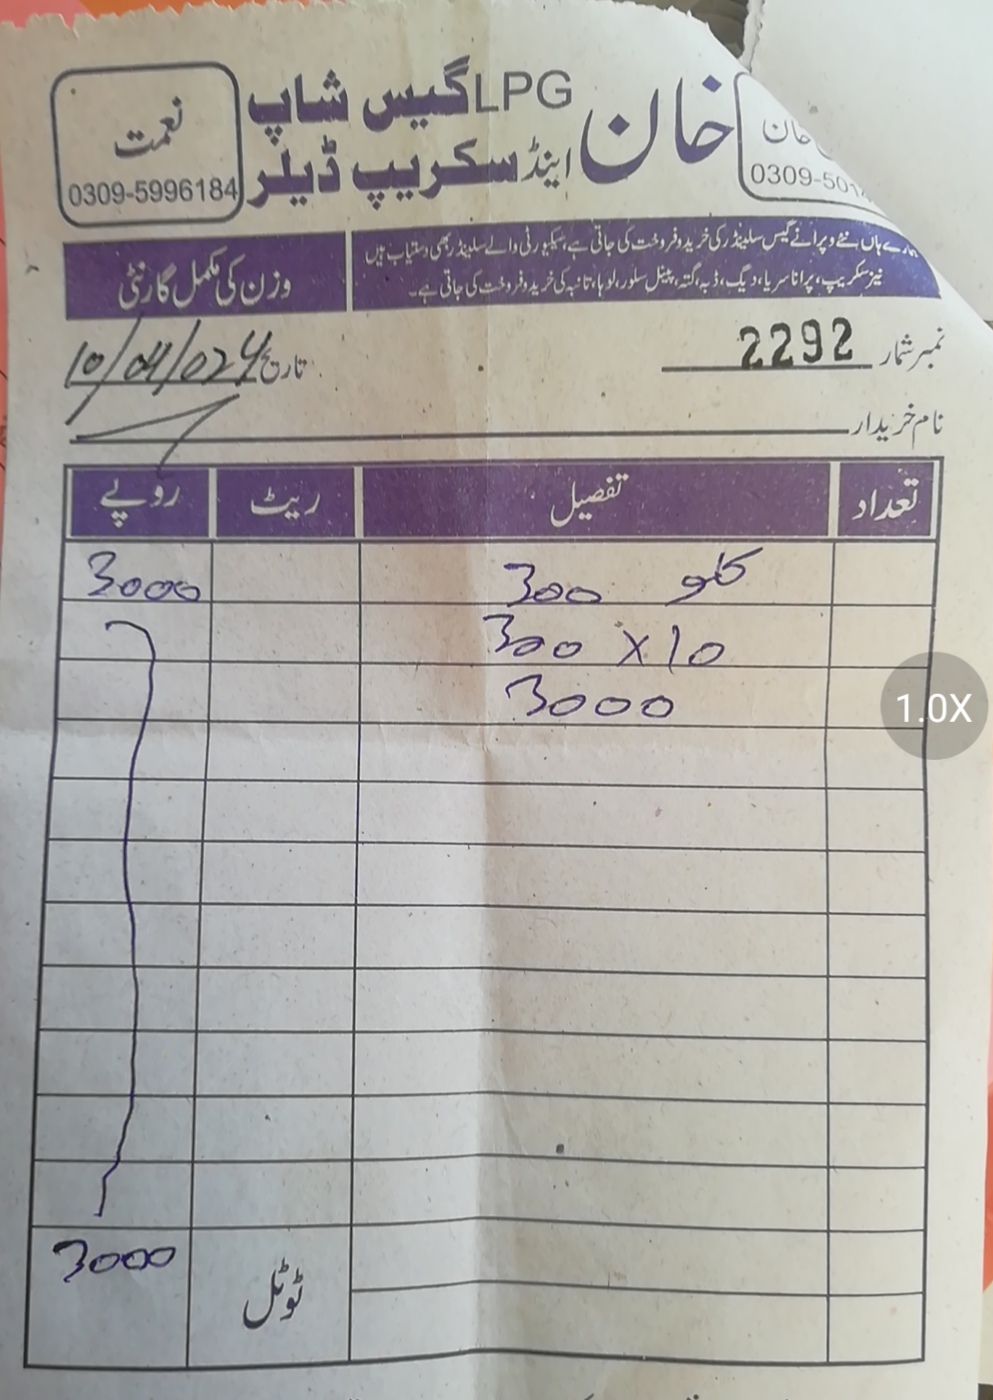 خان LPG گیس شاپ
اینڈ سکریپ ڈیلر
نعمت
0309-5996184
خان
0309-501
ہاں نئے و پرانے گیس سلینڈر کی خرید و فروخت کی جاتی ہے، سیکیورٹی والے سلینڈر بھی دستیاب ہیں
نیز سکریپ، پرانا سریا، دیگ، ڈبہ، گتہ، پیتل سلور، لوہا، تانبہ کی خرید و فروخت کی جاتی ہے۔
وزن کی مکمل گارنٹی
نمبر شمار 2292
تاریخ 10/04/024
نام خریدار
تعداد تفصیل ریٹ روپے
کلو 300 3000
300 x 10
3000
ٹوٹل 3000
1.0X